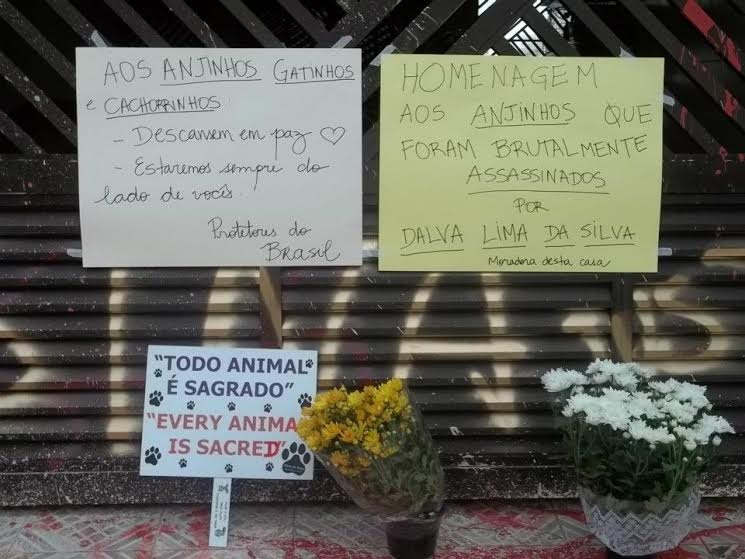 AOS ANJINHOS GATINHOS
e CACHORRINHOS
- Descansem em paz ♡
- Estaremos sempre do
lado de vocês.
Protetores do
Brasil
HOMENAGEM
AOS ANJINHOS QUE
FORAM BRUTALMENTE
ASSASSINADOS
POR
DALVA LIMA DA SILVA
Moradora desta casa
"TODO ANIMAL
É SAGRADO"
"EVERY ANIMA
IS SACRED"